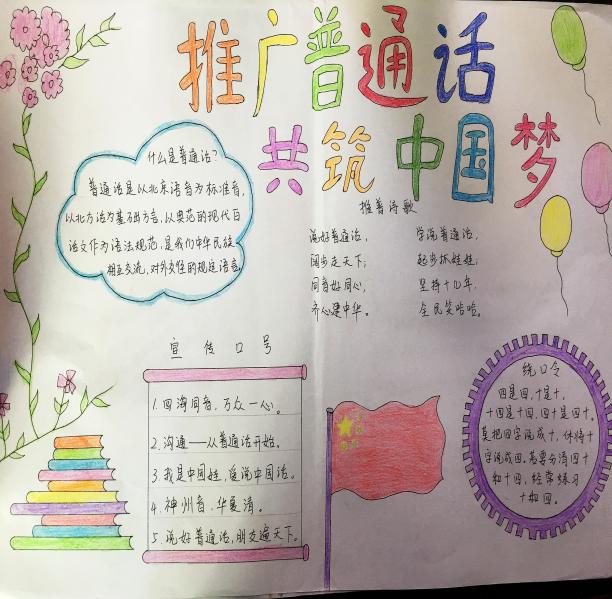 推广普通话
共筑中国梦
什么是普通话?
普通话是以北京语音为标准音,
以北方话为基础方言,以典范的现代白
话文作为语法规范,是我们中华民族
相互交流,对外交往的规定语言。
推普诗歌
说好普通话,
阔步走天下;
同音好同心,
齐心建中华。
学说普通话,
起步抓娃娃;
坚持十几年,
全民笑哈哈。
宣传口号
1.四海同音,万众一心。
2.沟通——从普通话开始。
3.我是中国娃,爱说中国话。
4.神州音,华夏情。
5.说好普通话,朋友遍天下。
绕口令
四是四,十是十,
十四是十四,四十是四十。
莫把四字说成十,休将十
字说成四。若要分清四十
和十四,经常练习
十和四。